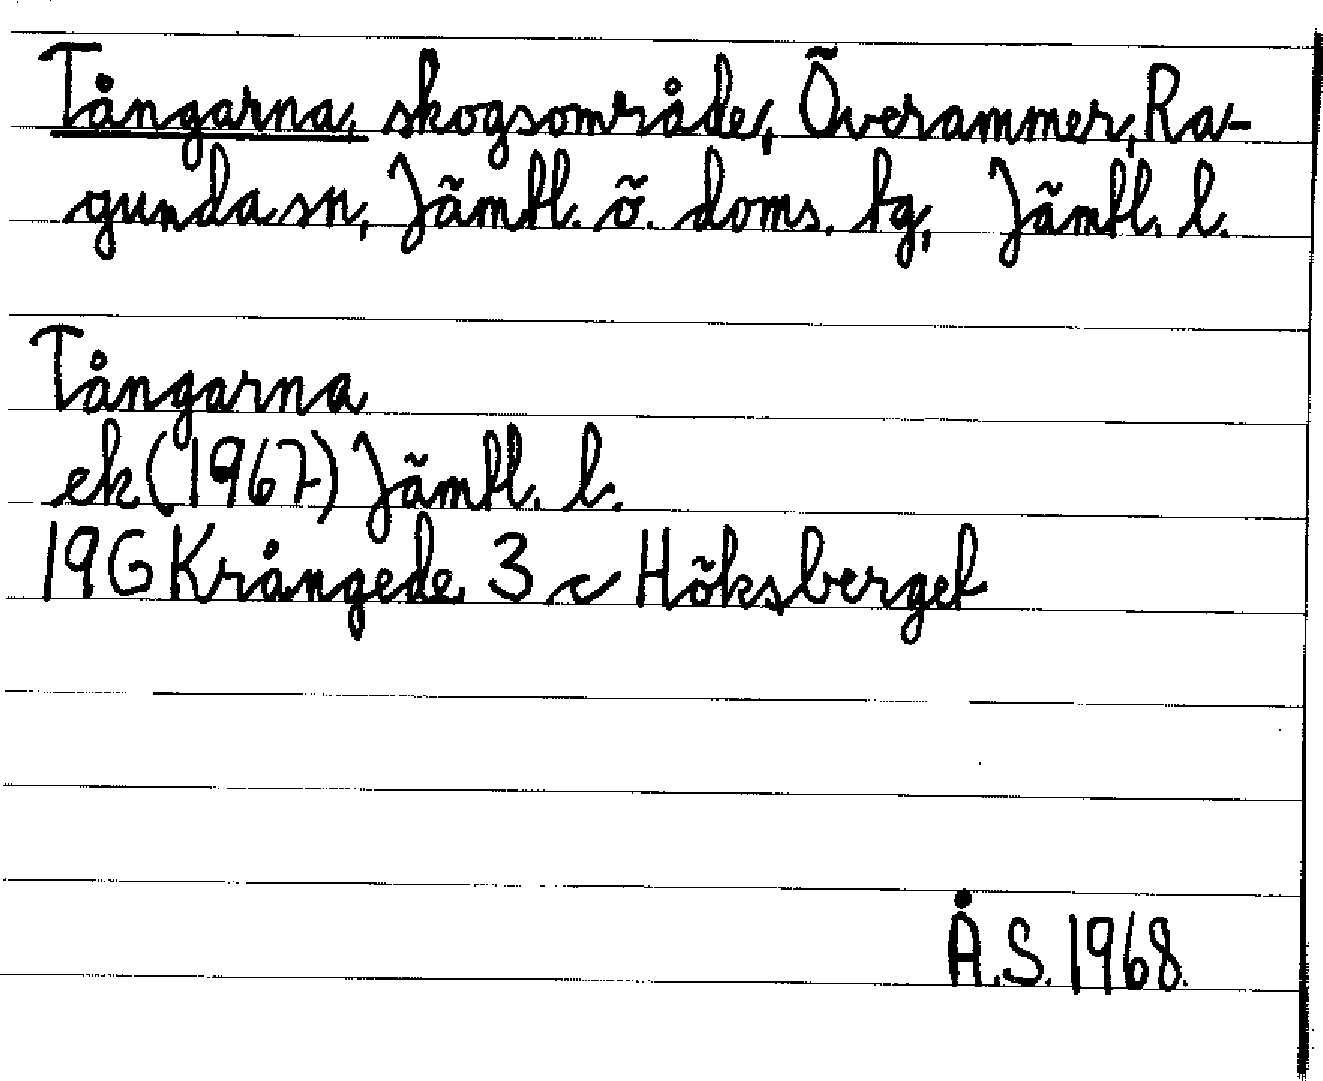 Tångarna, skogsområde, Överammer, Ra-
gunda sn, Jämtl. ö. doms. tg, Jämtl. l.
Tångarna
ek (1967) Jämtl. l.
19G Krångede 3 c Höksberget
Å.S. 1968.